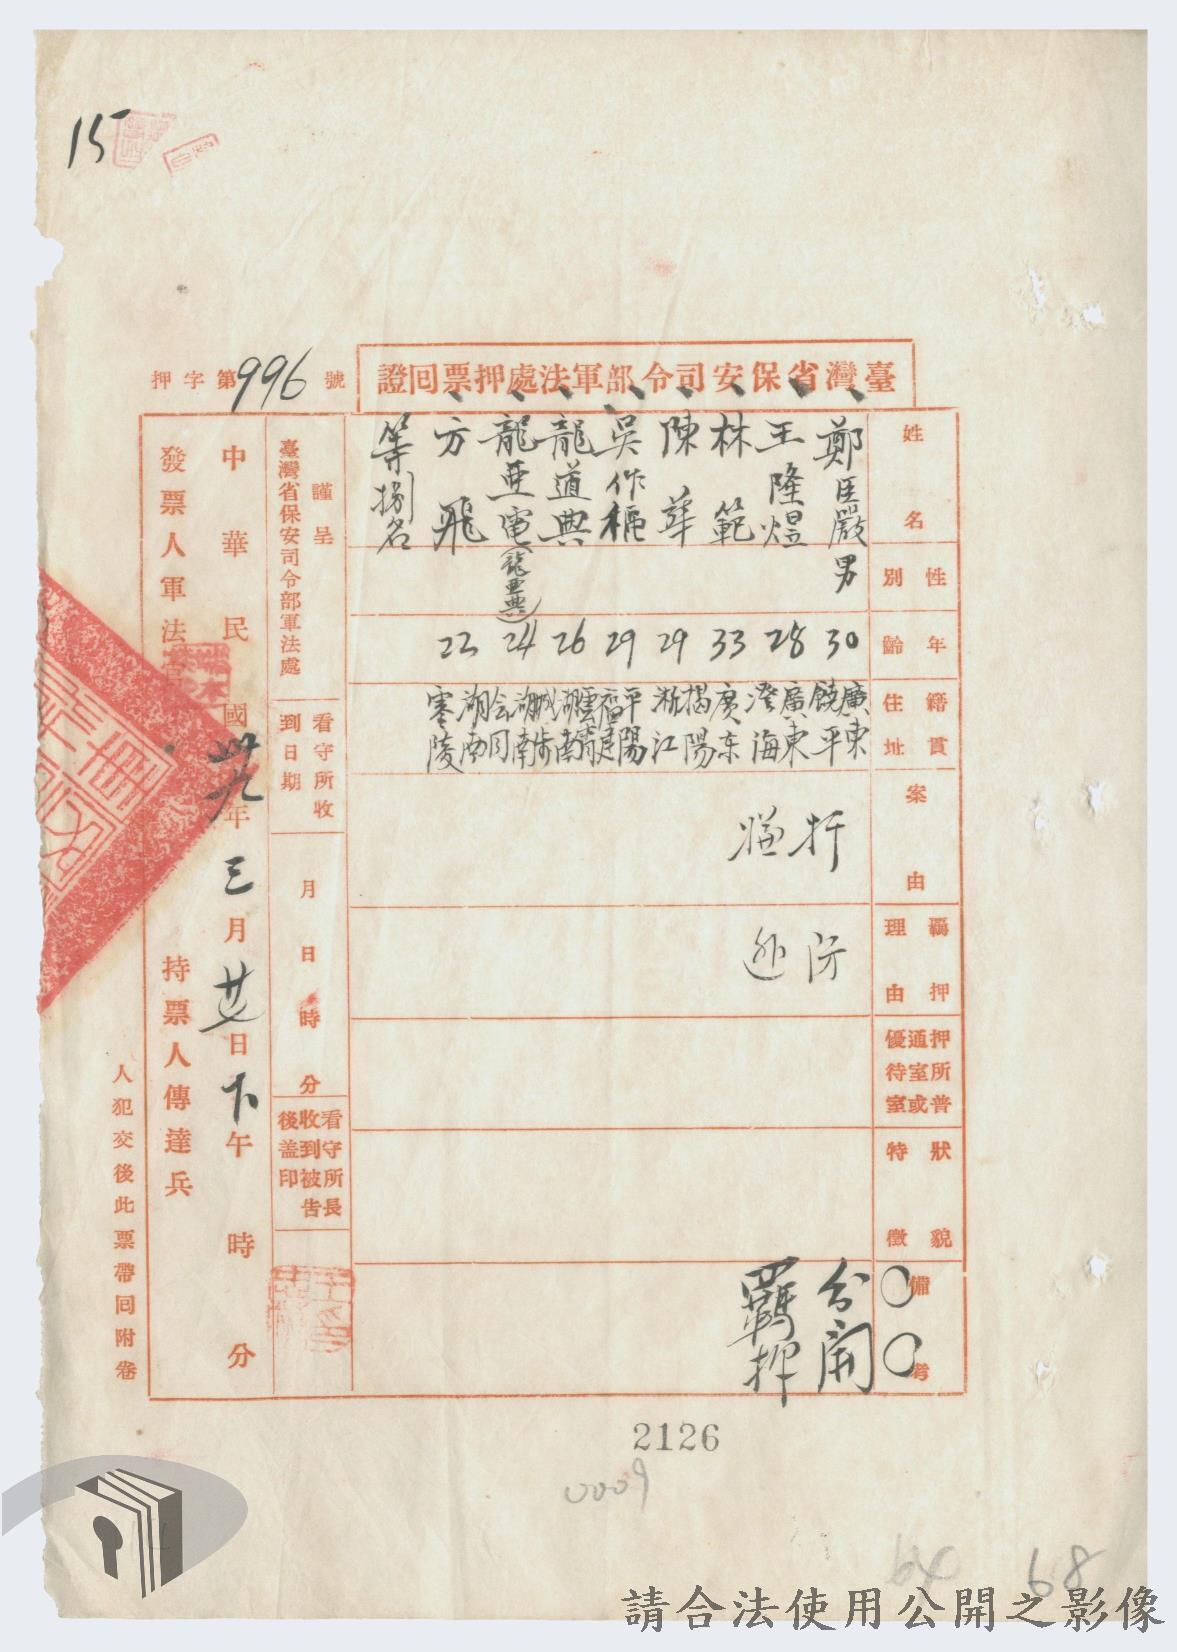 15
臺灣省保安司令部軍法處押票回證
押字第996號
姓名
鄭臣嚴
王隆煜
林範
陳華
吳作樞
龍道典
龍亜電(龍亜典)
方飛
等捌名
性別
男
年齡
30
28
33
29
29
26
24
22
籍貫
住址
廣東
饒平
廣東
澄海
广东
揭陽
浙江
平陽
福建
雲霄
湖南
城步
湖南
会同
湖南
零陵
案由
羈押理由
押所普通室或優待室
狀貌特徵
備考
分開
羈押
謹呈
臺灣省保安司令部軍法處
看守所收到日期
月日時分
看守所長收到被告後蓋印
中華民國卅九年三月廿日下午時分
發票人軍法官
持票人傳達兵
人犯交後此票帶回附卷
2126
0009
64
68
請合法使用公開之影像